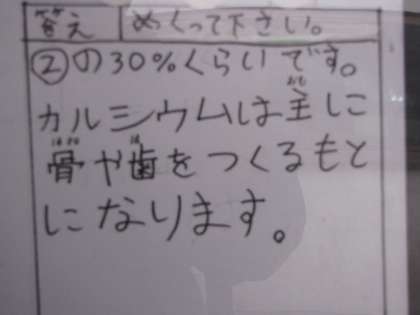 答え めくって下さい。
②の30%くらいです。
カルシウムは主に
骨や歯をつくるもと
になります。